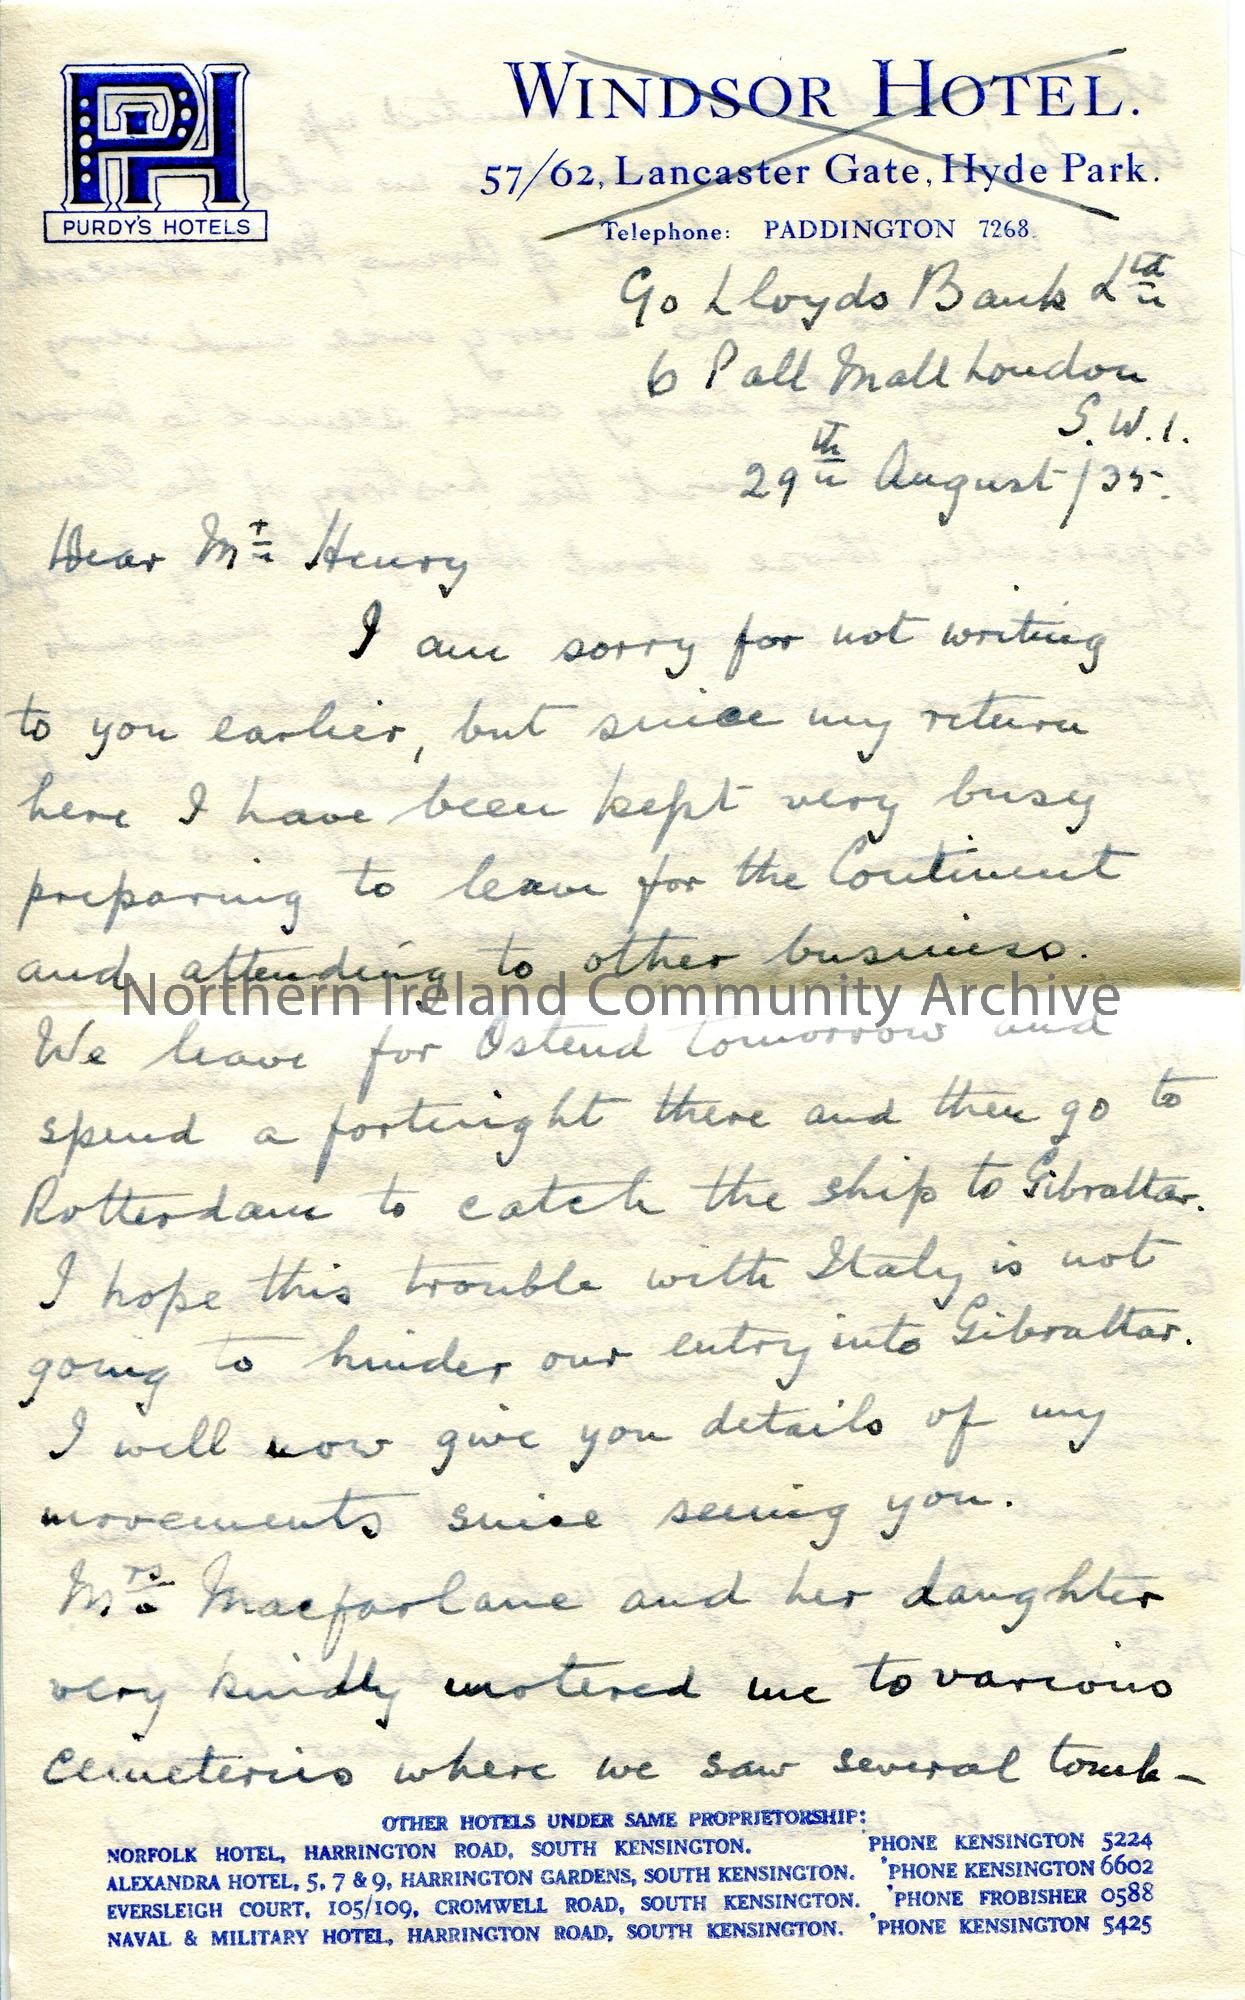 PH
PURDY'S HOTELS
WINDSOR HOTEL.
57/62, Lancaster Gate, Hyde Park.
Telephone: PADDINGTON 7268.
c/o Lloyds Bank Ltd
6 Pall Mall London
S.W.1.
29th August/35.
Dear Mr Henry
I am sorry for not writing
to you earlier, but since my return
here I have been kept very busy
preparing to leave for the Continent
and attending to other business.
Northern Ireland Community Archive
We leave for Ostend tomorrow and
spend a fortnight there and then go to
Rotterdam to catch the ship to Gibraltar.
I hope this trouble with Italy is not
going to hinder our entry into Gibraltar.
I will now give you details of my
movements since seeing you.
Mrs Macfarlane and her daughter
very kindly motored me to various
cemeteries where we saw several tomb-
OTHER HOTELS UNDER SAME PROPRIETORSHIP:
NORFOLK HOTEL, HARRINGTON ROAD, SOUTH KENSINGTON. 'PHONE KENSINGTON 5224
ALEXANDRA HOTEL, 5, 7 & 9, HARRINGTON GARDENS, SOUTH KENSINGTON. 'PHONE KENSINGTON 6602
EVERSLEIGH COURT, 105/109, CROMWELL ROAD, SOUTH KENSINGTON. 'PHONE FROBISHER 0588
NAVAL & MILITARY HOTEL, HARRINGTON ROAD, SOUTH KENSINGTON. 'PHONE KENSINGTON 5425